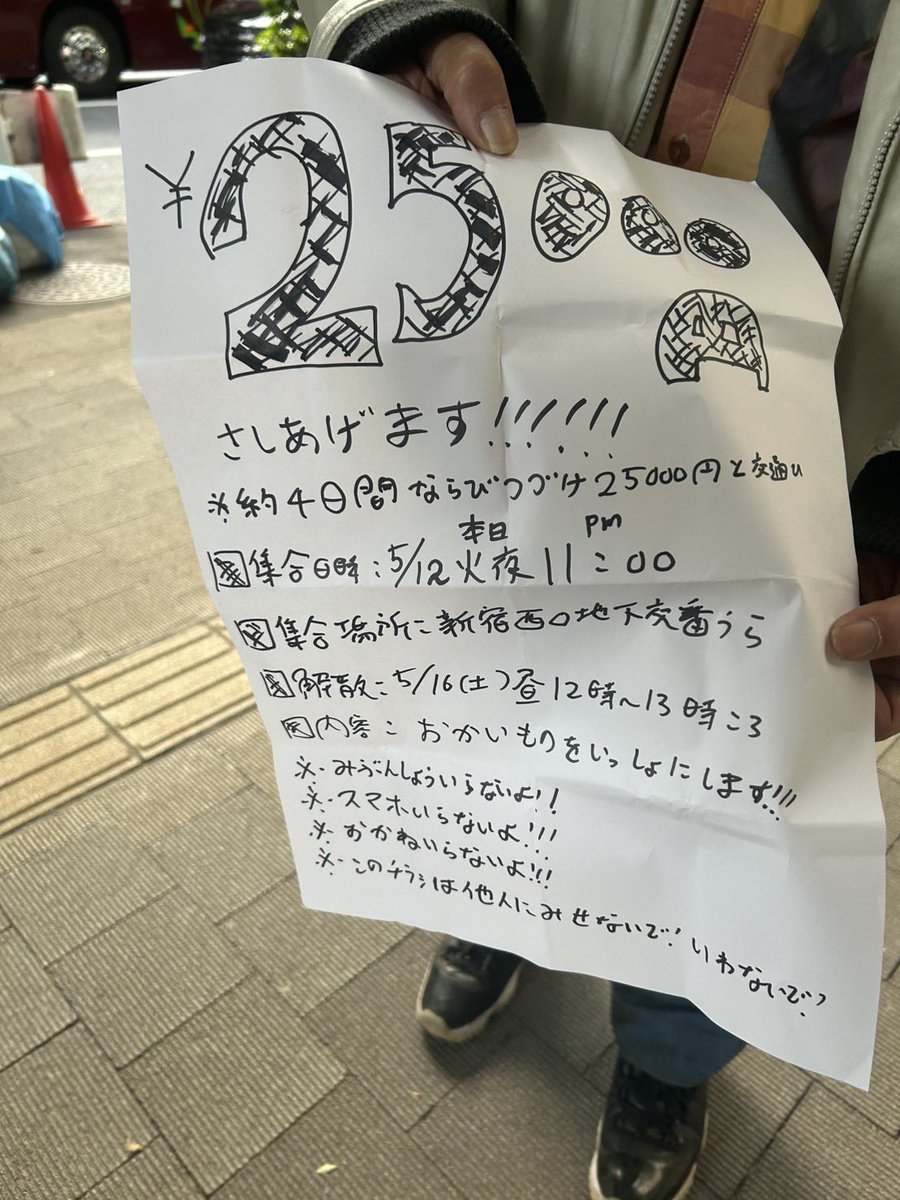 ¥25000円
さしあげます!!!!!!
※約4日間ならびつづけ25000円と交通ひ
本日 pm
図集合日時:5/12火夜11:00
図集合場所:新宿西口地下交番うら
図解散:5/16(土)昼12時~13時ころ
図内容:おかいものをいっしょにします!!!
※みぶんしょういらないよ!!
※スマホいらないよ!!!
※おかねいらないよ!!!
※このチラシは他人にみせないで!いわないで?